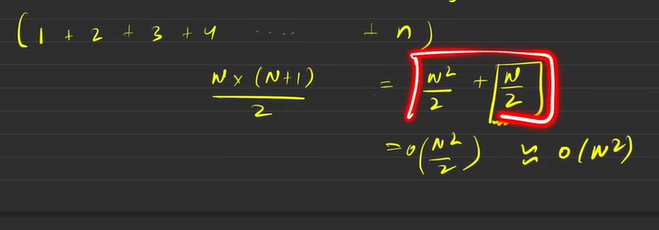 (1 + 2 + 3 + 4 ..... + n)
N x (N+1) / 2 = N²/2 + N/2
= O(N²/2) ≈ O(N²)